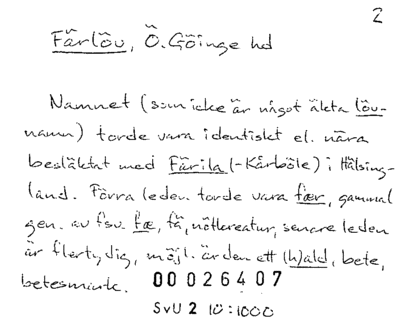 2
Färlöv, Ö. Göinge hd
Namnet (som icke är något äkta löv-
namn) torde vara identiskt el. nära
besläktat med Färila (-Kårböle) i Hälsing-
land. Förra leden torde vara fær, gammal
gen. av fsv. fæ, fä, nötkreatur, senare leden
är flertydig, möjl. är den ett (h)ald, bete,
betesmark.
00 026407
SvU 2 10:1000